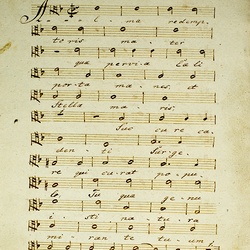 Alma redemp-
toris mater
quae pervia Cæli
porta manes, et
Stella maris,
Sucurre ca-
denti Surge-
re qui curat popu-
lo Tu quæ genu-
isti natura
mirante tuum